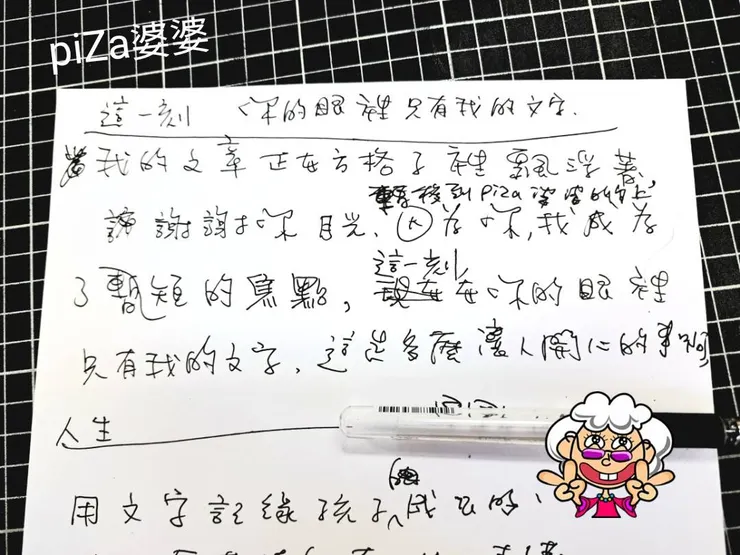 piZa婆婆
這一刻 你的眼裡只有我的文字.
我的文章正在方格子裡飄浮著,
轉移到Piza婆婆的身上,
謝謝 你 目光、因為你,我成為
這一刻,
了暫短的焦點, 在你的眼裡
只有我的文字, 這是多麼讓人開心的事啊,
人生
用文字記錄孩子 成長的